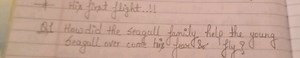 His first flight..!!
Q1 How did the seagull family help the young
seagull over come his fear & fly?